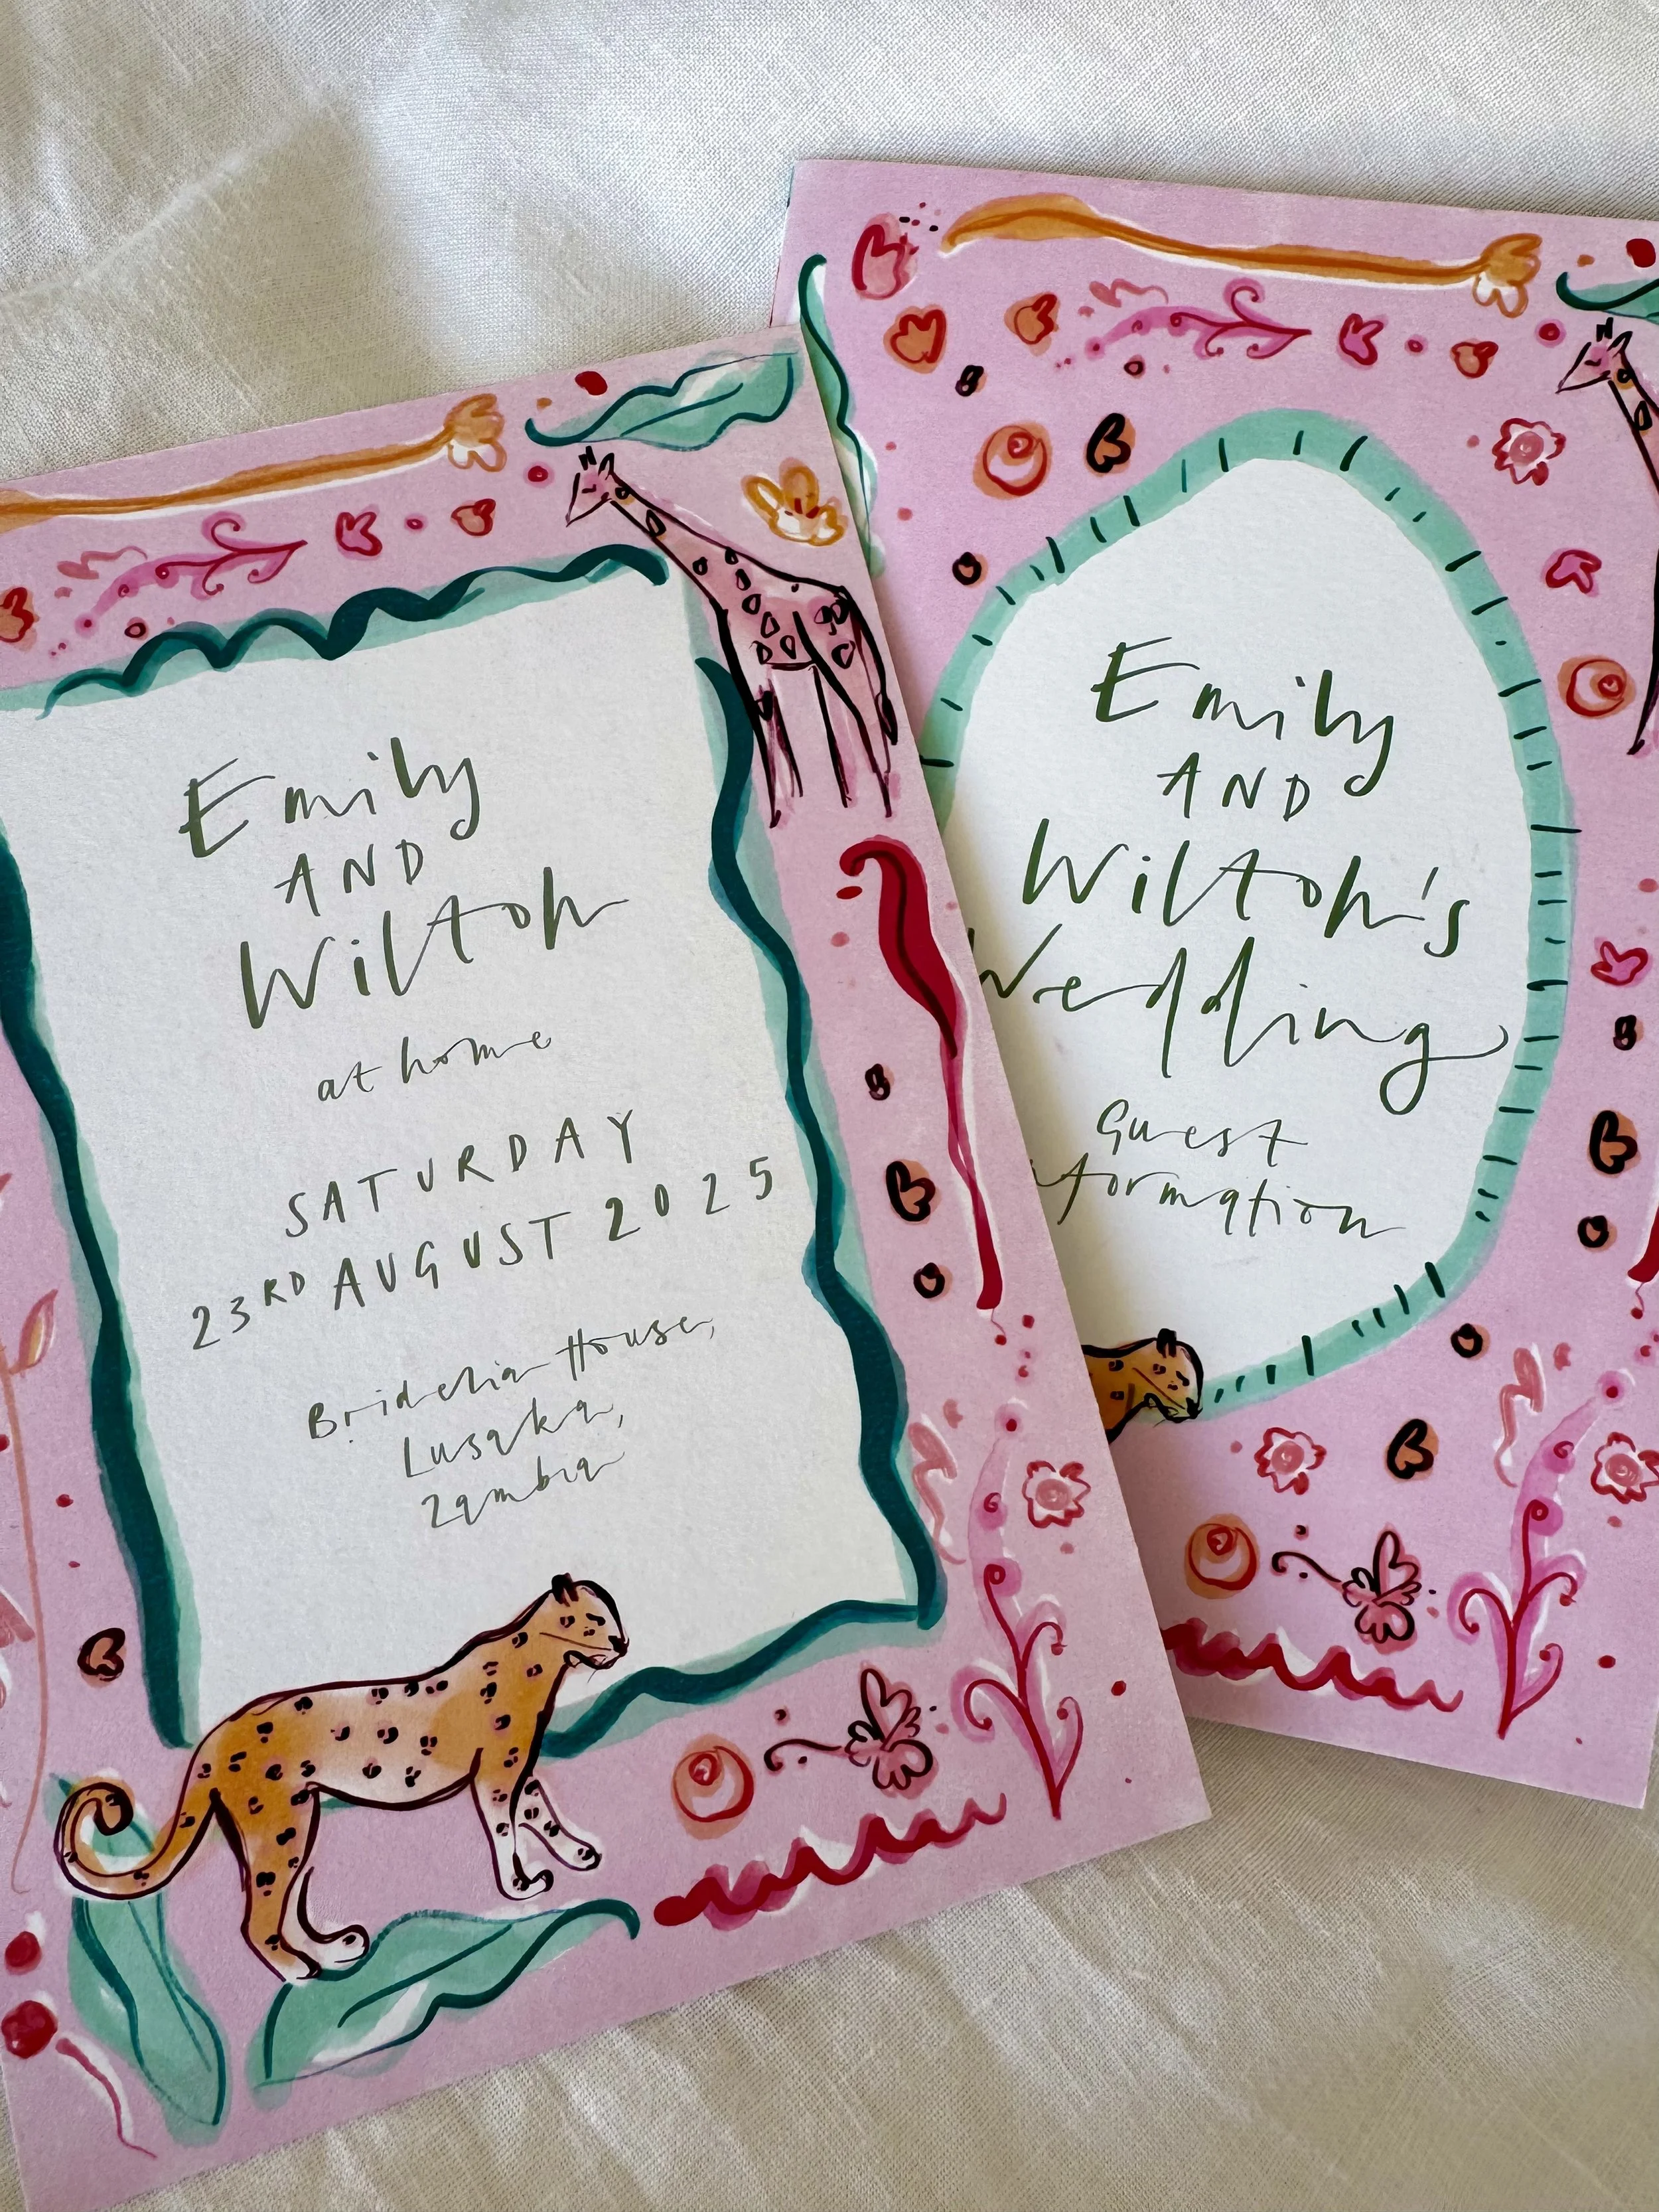 Emily
AND
Wilton
at home
SATURDAY
23RD AUGUST 2025
Bridelia House,
Lusaka,
Zambia
Emily
AND
Wilton's
Wedding
Guest
formation